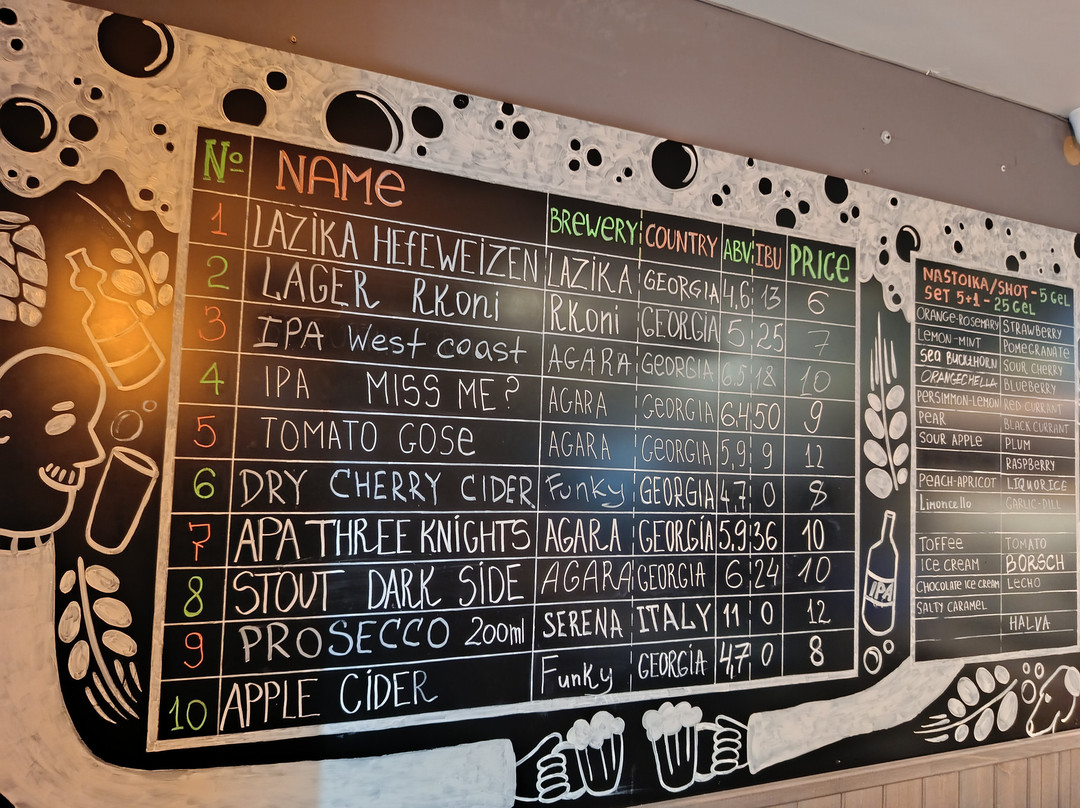 № NAME BREWERY COUNTRY ABV IBU PRICE
1 LAZIKA HEFEWEIZEN LAZIKA GEORGIA 4,6 13 6
2 LAGER RKoni RKoni GEORGIA 5 25 7
3 IPA West coast AGARA GEORGIA 6.5 18 10
4 IPA MISS ME? AGARA GEORGIA 6,4 50 9
5 TOMATO GOSE AGARA GEORGIA 5,9 9 12
6 DRY CHERRY CIDER Funky GEORGIA 4,7 0 8
7 APA THREE KNIGHTS AGARA GEORGIA 5,9 36 10
8 STOUT DARK SIDE AGARA GEORGIA 6 24 10
9 PROSECCO 200ml SERENA ITALY 11 0 12
10 APPLE CIDER Funky GEORGIA 4,7 0 8
IPA
NASTOIKA/SHOT - 5 GEL
SET 5+1 - 25 GEL
ORANGE-ROSEMARY STRAWBERRY
LEMON-MINT POMEGRANATE
SEA BUCKTHORN SOUR CHERRY
ORANGECHELLA BLUEBERRY
PERSIMMON-LEMON RED CURRANT
PEAR BLACK CURRANT
SOUR APPLE PLUM
RASPBERRY
PEACH-APRICOT LIQUORICE
Limoncello GARLIC-DILL
TOFFEE TOMATO
ICE CREAM BORSCH
CHOCOLATE ICE CREAM LECHO
SALTY CARAMEL
HALVA